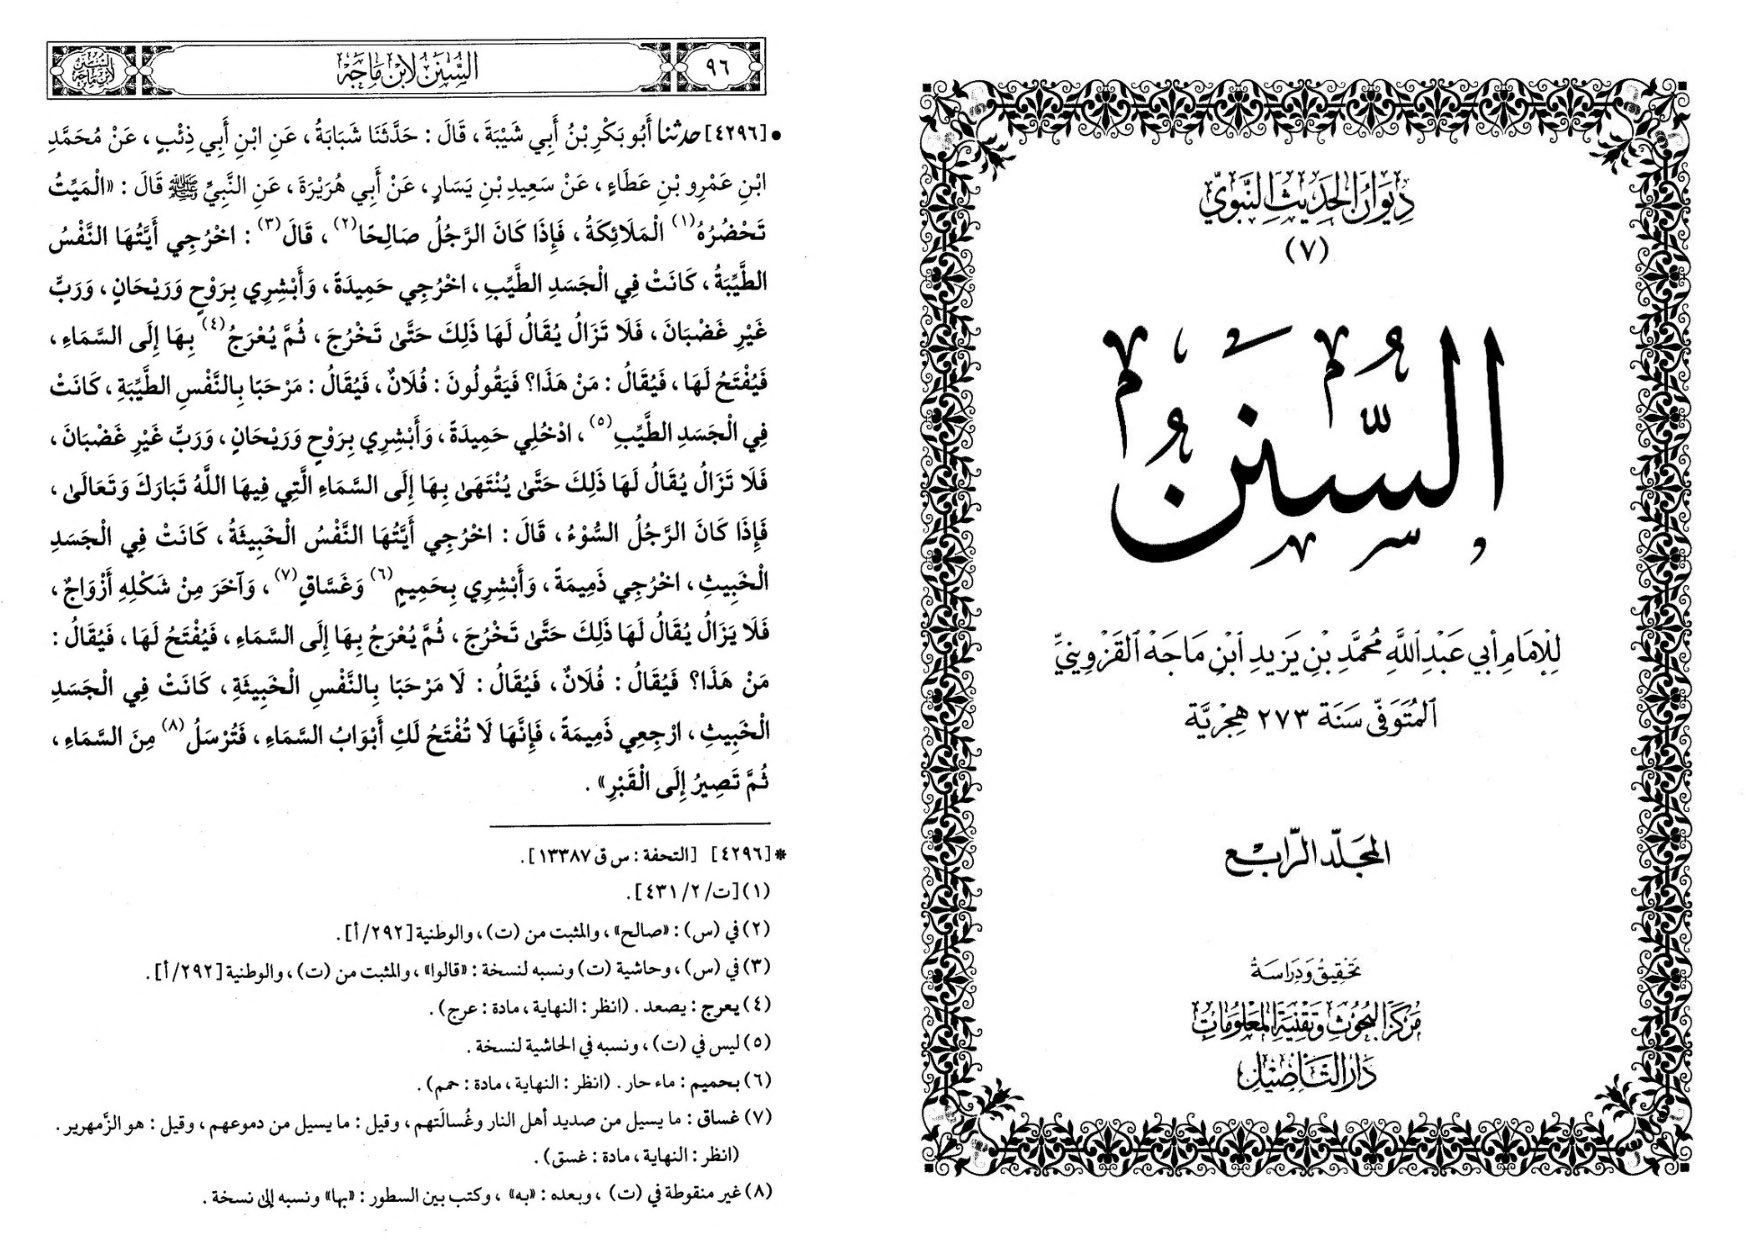 ديوان الحديث النبوي
(٧)
السُّنَنُ
لِلْإِمَامِ أَبِي عَبْدِ اللَّهِ مُحَمَّدِ بْنِ يَزِيدِ ابْنِ مَاجَهْ القَزْوِينِيِّ
المُتَوَفَّى سَنَة ٢٧٣ هِجْرِيَّة
المجلّد الرّابع
تَحْقِيقُ وَدِرَاسَةُ
مركز البحوث وتقنية المعلومات
دار التأصيل
٩٦
السُّنَنُ لابن ماجه
السُّنَنُ لابن ماجه
• [٤٢٩٦] حدثنا أَبُو بَكْرِ بْنُ أَبِي شَيْبَةَ ، قَالَ : حَدَّثَنَا شَبَابَةُ ، عَنِ ابْنِ أَبِي ذِئْبٍ ، عَنْ مُحَمَّدِ
ابْنِ عَمْرِو بْنِ عَطَاءٍ ، عَنْ سَعِيدِ بْنِ يَسَارٍ ، عَنْ أَبِي هُرَيْرَةَ ، عَنِ النَّبِيِّ ﷺ قَالَ : «الْمَيِّتُ
تَحْضُرُهُ(١) الْمَلَائِكَةُ ، فَإِذَا كَانَ الرَّجُلُ صَالِحًا(٢) ، قَالَ(٣) : اخْرُجِي أَيَّتُهَا النَّفْسُ
الطَّيِّبَةُ ، كَانَتْ فِي الْجَسَدِ الطَّيِّبِ ، اخْرُجِي حَمِيدَةً ، وَأَبْشِرِي بِرَوْحٍ وَرَيْحَانٍ ، وَرَبٍّ
غَيْرِ غَضْبَانَ ، فَلَا تَزَالُ يُقَالُ لَهَا ذَلِكَ حَتَّى تَخْرُجَ ، ثُمَّ يُعْرَجُ(٤) بِهَا إِلَى السَّمَاءِ ،
فَيُفْتَحُ لَهَا ، فَيُقَالُ : مَنْ هَذَا؟ فَيَقُولُونَ : فُلَانٌ ، فَيُقَالُ : مَرْحَبًا بِالنَّفْسِ الطَّيِّبَةِ ، كَانَتْ
فِي الْجَسَدِ الطَّيِّبِ(٥) ، ادْخُلِي حَمِيدَةً ، وَأَبْشِرِي بِرَوْحٍ وَرَيْحَانٍ ، وَرَبٍّ غَيْرِ غَضْبَانَ ،
فَلَا تَزَالُ يُقَالُ لَهَا ذَلِكَ حَتَّى يُنْتَهَى بِهَا إِلَى السَّمَاءِ الَّتِي فِيهَا اللَّهُ تَبَارَكَ وَتَعَالَى ،
فَإِذَا كَانَ الرَّجُلُ السُّوْءُ ، قَالَ : اخْرُجِي أَيَّتُهَا النَّفْسُ الْخَبِيثَةُ ، كَانَتْ فِي الْجَسَدِ
الْخَبِيثِ ، اخْرُجِي ذَمِيمَةً ، وَأَبْشِرِي بِحَمِيمٍ(٦) وَغَسَّاقٍ(٧) ، وَآخَرَ مِنْ شَكْلِهِ أَزْوَاجٌ ،
فَلَا يَزَالُ يُقَالُ لَهَا ذَلِكَ حَتَّى تَخْرُجَ ، ثُمَّ يُعْرَجُ بِهَا إِلَى السَّمَاءِ ، فَيُفْتَحُ لَهَا ، فَيُقَالُ :
مَنْ هَذَا؟ فَيُقَالُ : فُلَانٌ ، فَيُقَالُ : لَا مَرْحَبًا بِالنَّفْسِ الْخَبِيثَةِ ، كَانَتْ فِي الْجَسَدِ
الْخَبِيثِ ، ارْجِعِي ذَمِيمَةً ، فَإِنَّهَا لَا تُفْتَحُ لَكِ أَبْوَابُ السَّمَاءِ ، فَتُرْسَلُ(٨) مِنَ السَّمَاءِ ،
ثُمَّ تَصِيرُ إِلَى الْقَبْرِ» .
* [٤٢٩٦] [التحفة : س ق ١٣٣٨٧] .
(١) [ت/ ٢/ ٤٣١] .
(٢) في (س) : «صالح» ، والمثبت من (ت) ، والوطنية [٢٩٢/ أ] .
(٣) في (س) ، وحاشية (ت) ونسبه لنسخة : «قالوا» ، والمثبت من (ت) ، والوطنية [٢٩٢/ أ] .
(٤) يعرج : يصعد . (انظر : النهاية ، مادة : عرج) .
(٥) ليس في (ت) ، ونسبه في الحاشية لنسخة .
(٦) بحميم : ماء حار . (انظر : النهاية ، مادة : حمم) .
(٧) غساق : ما يسيل من صديد أهل النار وغُسالَتهم ، وقيل : ما يسيل من دموعهم ، وقيل : هو الزَّمهرير .
(انظر : النهاية ، مادة : غسق) .
(٨) غير منقوطة في (ت) ، وبعده : «به» ، وكتب بين السطور : «بها» ونسبه إلى نسخة .